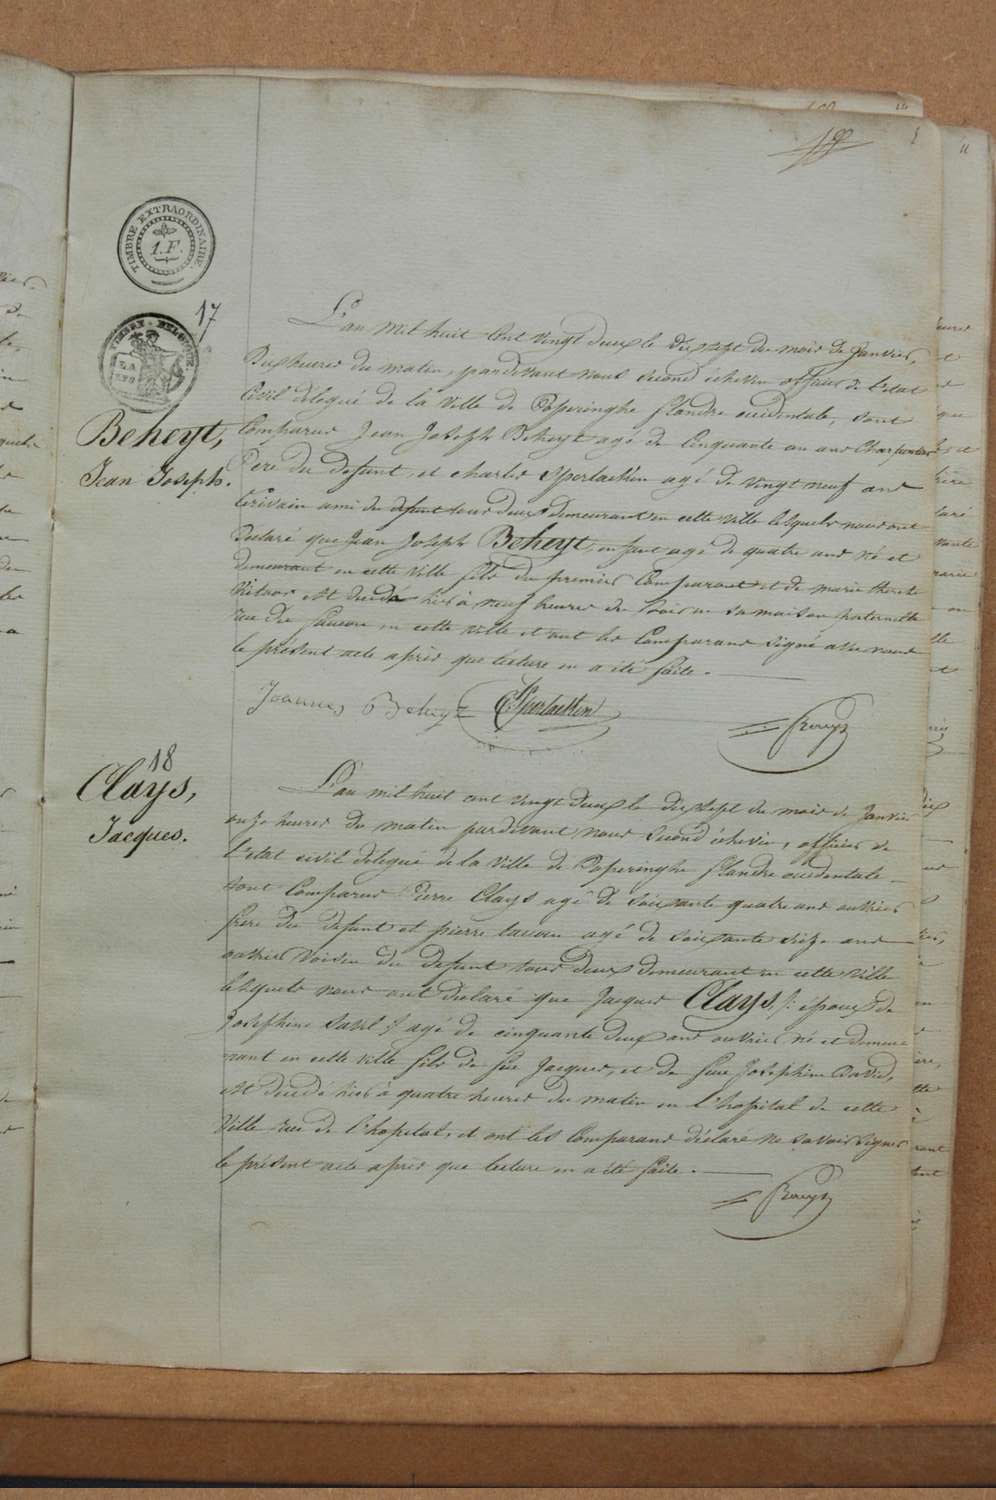 TIMBRE EXTRAORDINAIRE.
1.F.
17
Beheyt,
Jean Joseph.
L'an mil huit cent vingt deux le dix sept du mois de Janvier,
Dix heures du matin, pardevant nous second échevin officier de l'état
Civil délégué de la Ville de Poperinghe flandre occidentale, sont
Comparus Jean Joseph Beheyt agé de Cinquante un ans Charpentier
Père du defunt, et charles Sperlaeken agé de vingt neuf ans
Ecrivain ami du defunt tous deux demeurant en cette ville lesquels nous ont
Declaré que Jean Joseph Beheyt, enfant agé de quatre ans né et
demeurant en cette Ville fils du premier Comparant et de marie therese
est decedé hier à neuf heures du soir en sa maison paternelle
rue du en cette ville et ont les Comparans signé avec nous
le présent acte après que lecture en a été faite.
Joannes Beheyt
18
Clays,
Jacques.
L'an mil huit cent vingt deux le dix sept du mois de Janvier
onze heures du matin pardevant nous second échevin, officier de
l'état civil délégué de la Ville de Poperinghe flandre occidentale
sont Comparus Pierre Clays agé de soixante quatre ans ouvrier
frère du defunt et pierre agé de soixante seize ans
ouvrier voisin du defunt tous deux demeurant en cette ville
lesquels nous ont declaré que Jacques Clays /: époux de
Josephine :/ agé de cinquante deux ans ouvrier né et demeu
rant en cette ville fils de feu Jacques, et de feue Josephine David,
est decedé hier à quatre heures du matin en l'hopital de cette
Ville rue de l'hopital, et ont les Comparans déclaré ne savoir signer
le présent acte après que lecture en a été faite.